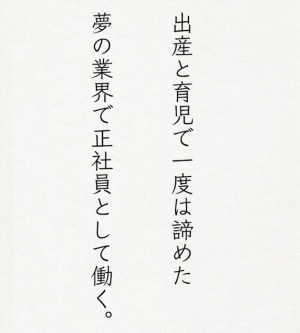 出産と育児で一度は諦めた
夢の業界で正社員として働く。